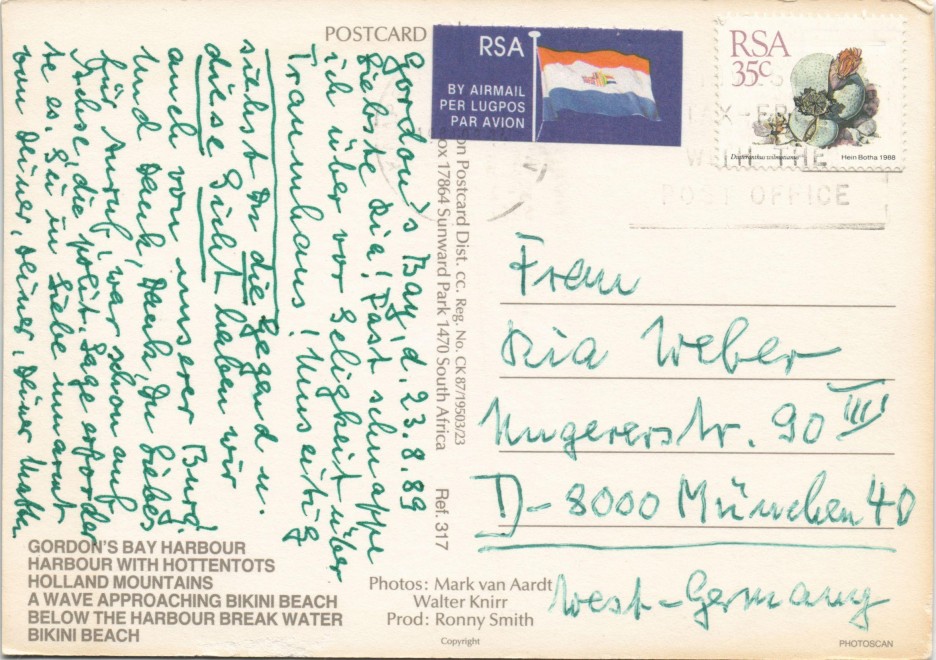 POSTCARD
RSA
BY AIRMAIL
PER LUGPOS
PAR AVION
RSA
35c
Hein Botha 1988
WITH THE
POST OFFICE
Gordon's Bay, d. 23.8.89
Liebste Ria! Fast schnappe
ich über vor Seligkeit über
Traumhaus! Umseitig
siehst Du die Gegend u.
diese Sicht haben wir
auch von unserer Burg!
Und Dank, Dank, Du Liebes
für Anruf, war schon auf
Achse, die polit. Lage erforder
te es. Sei in Liebe umarmt
von Deiner, Deiner, Deiner
on Postcard Dist. CC. Reg. No. CK87/19503/23
ox 17864 Sunward Park 1470 South Africa
Ref. 317
Frau
Ria Weber
Ungererstr. 90 III
D-8000 München 40
West-Germany
GORDON'S BAY HARBOUR
HARBOUR WITH HOTTENTOTS
HOLLAND MOUNTAINS
A WAVE APPROACHING BIKINI BEACH
BELOW THE HARBOUR BREAK WATER
BIKINI BEACH
Photos: Mark van Aardt
Walter Knirr
Prod: Ronny Smith
Copyright
PHOTOSCAN